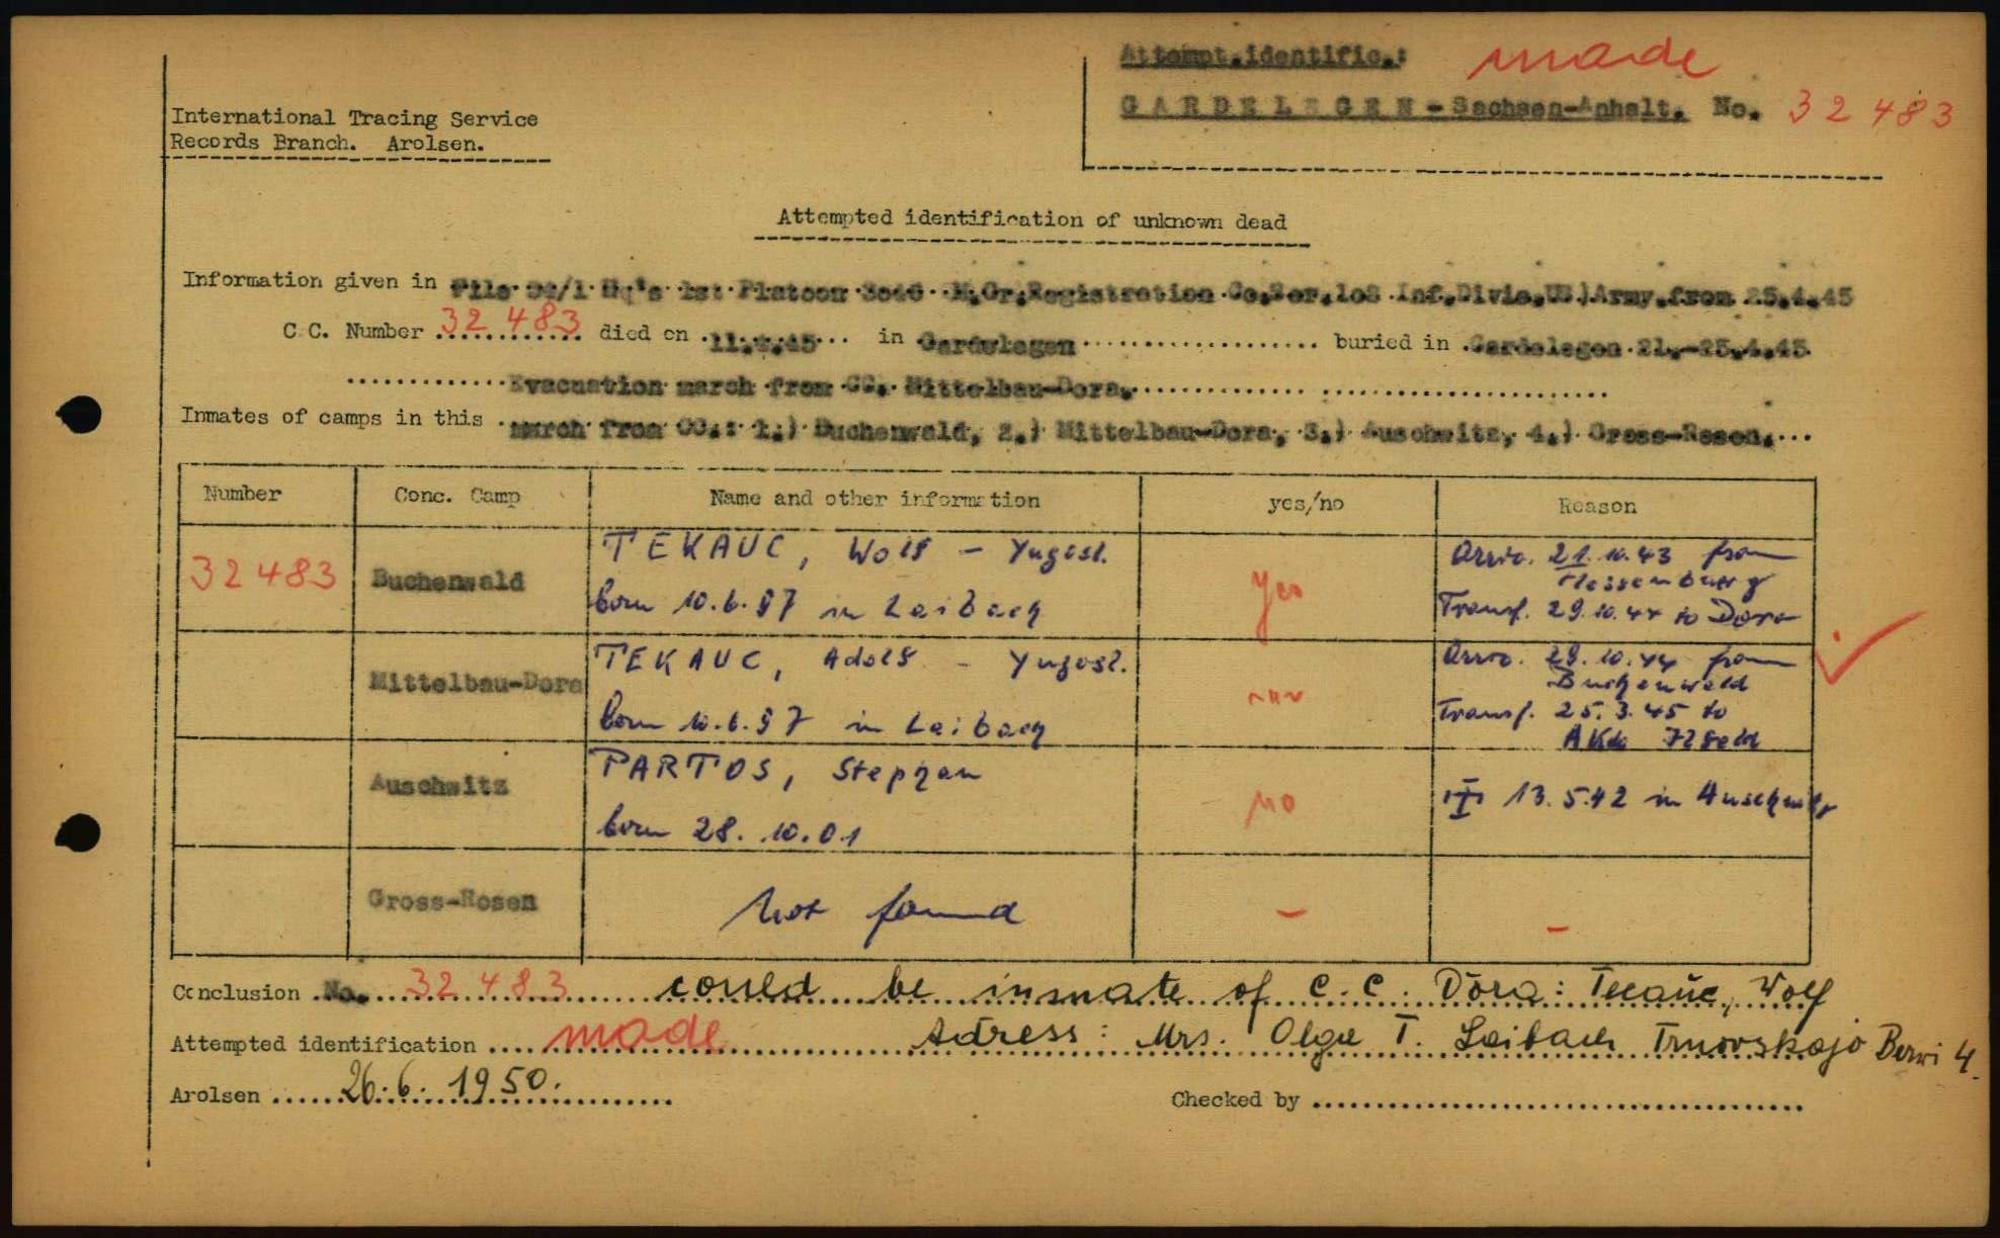 Attempt.identific.: made
GARDELEGEN - Sachsen-Anhalt. No. 32 483
International Tracing Service
Records Branch. Arolsen.
Attempted identification of unknown dead
Information given in File 52/1 Hq's 1st Platoon 3046 M.Gr.Registration Co.Ser.108 Inf.Divis.US)Army.from 25.4.45
C.C. Number 32 483 died on 11.4.45 in Gardelegen buried in Gardelegen 21.-25.4.45
Evacuation march from CC. Mittelbau-Dora.
Inmates of camps in this march from CC.: 1.) Buchenwald, 2.) Mittelbau-Dora, 3.) Auschwitz, 4.) Gross-Rosen.
Number Conc. Camp Name and other information yes/no Reason
32483 Buchenwald TEKAUC, Wolf - Yugosl. born 10.6.97 in Laibach yes Arriv. 21.10.43 from Flossenburg Transf. 29.10.44 to Dora
Mittelbau-Dora TEKAUC, Adolf - Yugosl. born 10.6.97 in Laibach Arriv. 29.10.44 from Buchenwald Transf. 25.3.45 to AKdo Ilfeld
Auschwitz PARTOS, Stephan born 28.10.01 no 13.5.42 in Auschwitz
Gross-Rosen not found - -
Conclusion No. 32 483 could be inmate of C.C. Dora: Tecauc, Wolf
Attempted identification made Adress: Mrs. Olga T. Laibach Trnovskajo Berri 4.
Arolsen 26.6.1950. Checked by